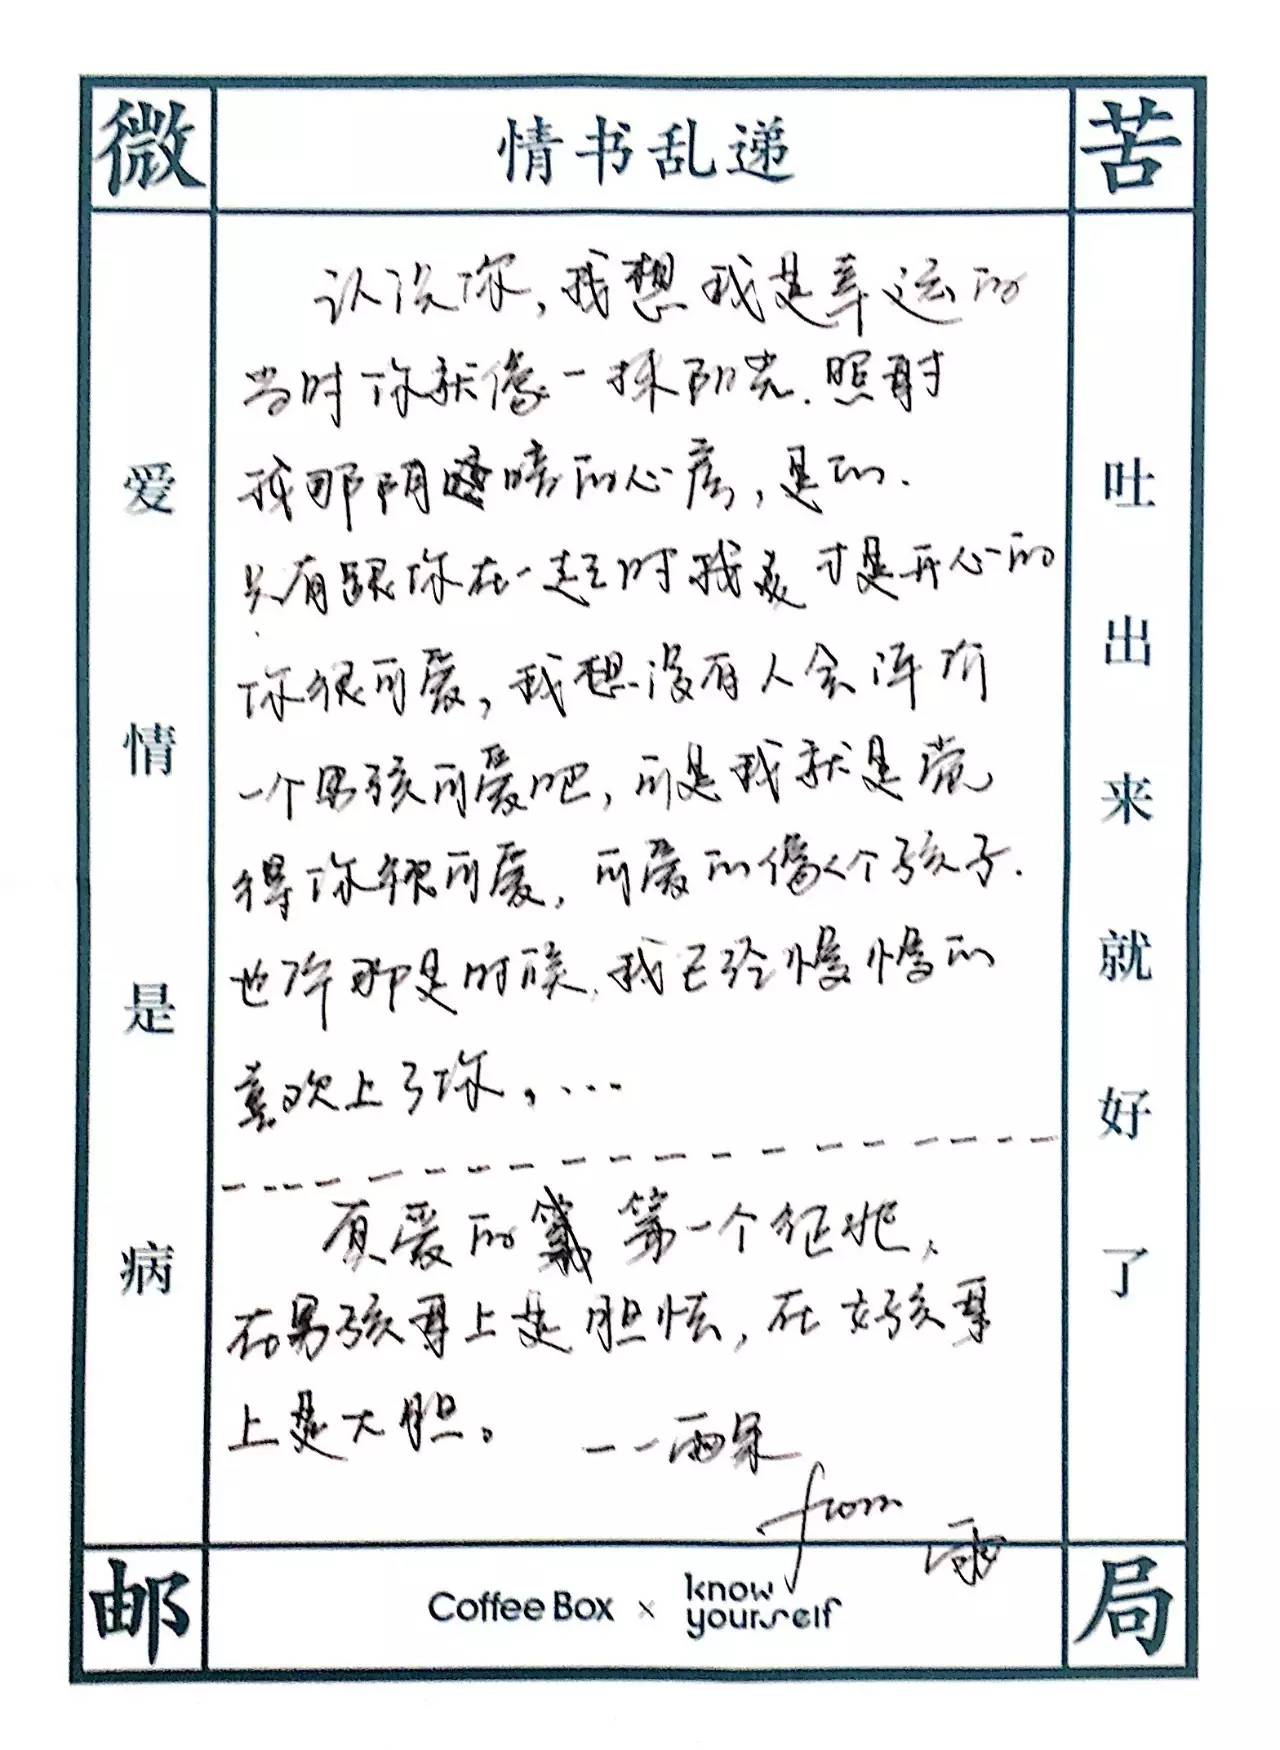 微
情书乱递
苦
爱情是病
吐出来就好了
认识你,我想我是幸运的
当时你就像一抹阳光.照射
我那阴暗的心房,是的.
只有跟你在一起时我 才是开心的
你很可爱,我想没有人会评价
一个男孩可爱吧,可是我就是觉
得你很可爱,可爱的像个孩子.
也许那是时候,我已经慢慢的
喜欢上了你,...
真爱的 第一个征兆,
在男孩身上是胆怯,在女孩身
上是大胆。 ——雨果
from
邮
Coffee Box × know yourself
局